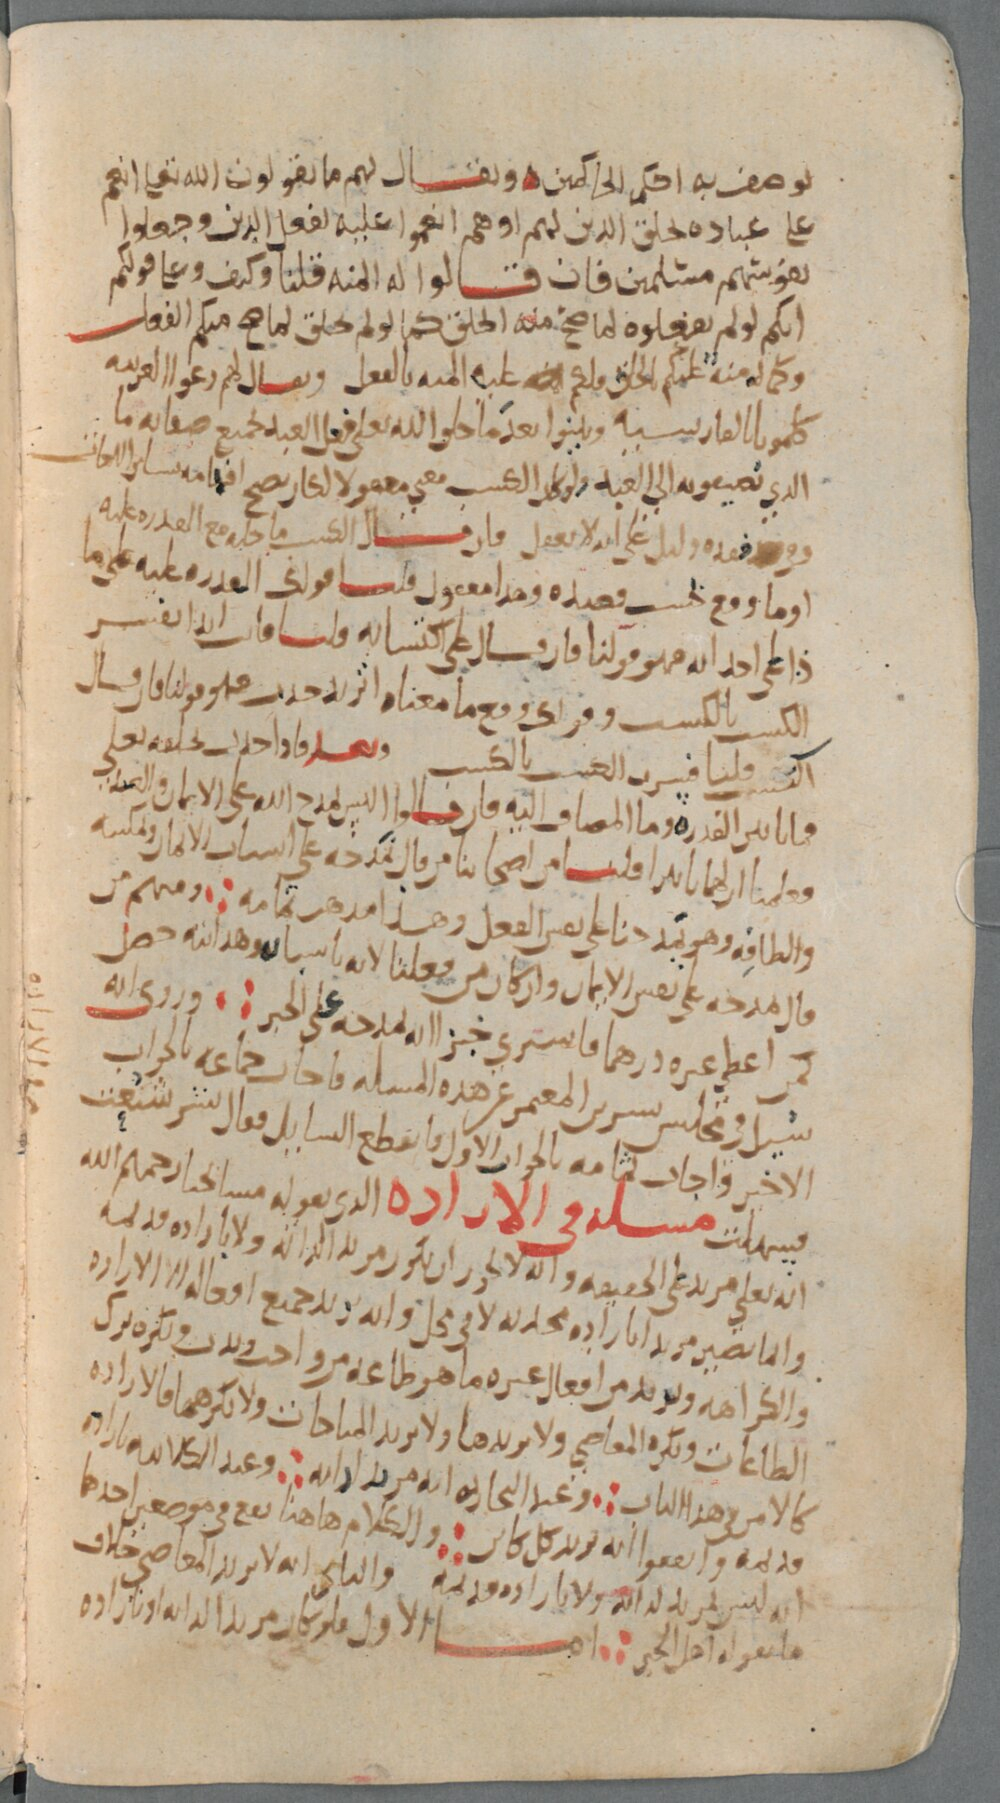 يوصف به احكم الحاكمين ويقال لهم ما تقولون الله تعالى انعم
على عباده بخلق الدين لهم او هم انعموا عليه بفعل الدين وجعلوا
نفوسهم مسلمين فان قالوا له المنه قلنا وكيف وعلى قولكم
انكم لو لم تفعلوه لما صح منه الخلق كما لو لم يخلق لما صح منكم الفعل
وكما له منه عليكم بالخلق فلكم عليه المنه بالفعل ويقال لهم دعوا العربيه
كلمونا بالفارسيه وبينوا بعد ما خلوا الله تعالى فعل العبد بجميع صفاته ما
الذي تضيفونه الى العبد ولو كان الكسب معنى معقولا لكان يصح افهامه بسائر اللغات
وفي فقده دليل على انه لا يعقل فان قال الكسب ما حله مع القدره عليه
او ما وقع بحسب قصده وهذا معقول قلنا قولك القدره عليه على ما
ذا على احداثه فهو قولنا فان قال على اكتسابه قلنا فانت اذا تفسر
الكسب بالكسب وقولك وقع ما معناه اتريد حدث فهو قولنا فان قال
اكتسب قلنا فسرت الكسب بالكسب وبعد فاذا حدث بخلقه تعالى
فما تاثير القدره وما المضاف اليه فان قالوا اليس يمدح الله على الايمان والعبد
فعلمنا ان لهما تاثيرا قلنا من اصحابنا من قال نمدحه على اسباب الايمان وتمكينه
والطافه وهو يمدحنا على نفس الفعل وهذا مذهب ثمامه ومنهم من
قال نمدحه على نفس الايمان وان كان من فعلنا لانه باسبابه وهدايته حصل
كمن اعطى غيره درهما فاشترى خبزا انه يمدحه على الخبز وروي انه
سئل في مجلس بشر بن المعتمر عن هذه المسله فاجاب جماعه بالجواب
الاخير واجاب ثمامه بالجواب الاول فانقطع السايل فقال بشر شنعت
فسهلت مسله في الاراده الذي يقوله مشايخنا رحمهم الله
انه تعالى مريد على الحقيقه وانه لا يجوز ان يكون مريدا لذاته ولا باراده قديمه
وانما يصير مريدا باراده محدثه لا في محل وانه يريد جميع افعاله الا الاراده
والكراهه ويريد من افعال غيره ما هو طاعه من واجب وندب ويكره ترك
الطاعات ويكره المعاصي ولا يريدها ولا يريد المباحات ولا يكرهها فالاراده
كالامر في هذا الباب وعند النجاريه انه مريد لذاته وعند الكلابيه باراده
قديمه واتفقوا انه يريد كل كائن والكلام هاهنا يقع في موضعين احدهما
انه ليس بمريد لذاته ولا باراده قديمه والثاني انه لا يريد المعاصي خلاف
ما يقوله اهل الجبر اما الاول فلو كان مريدا لذاته او باراده